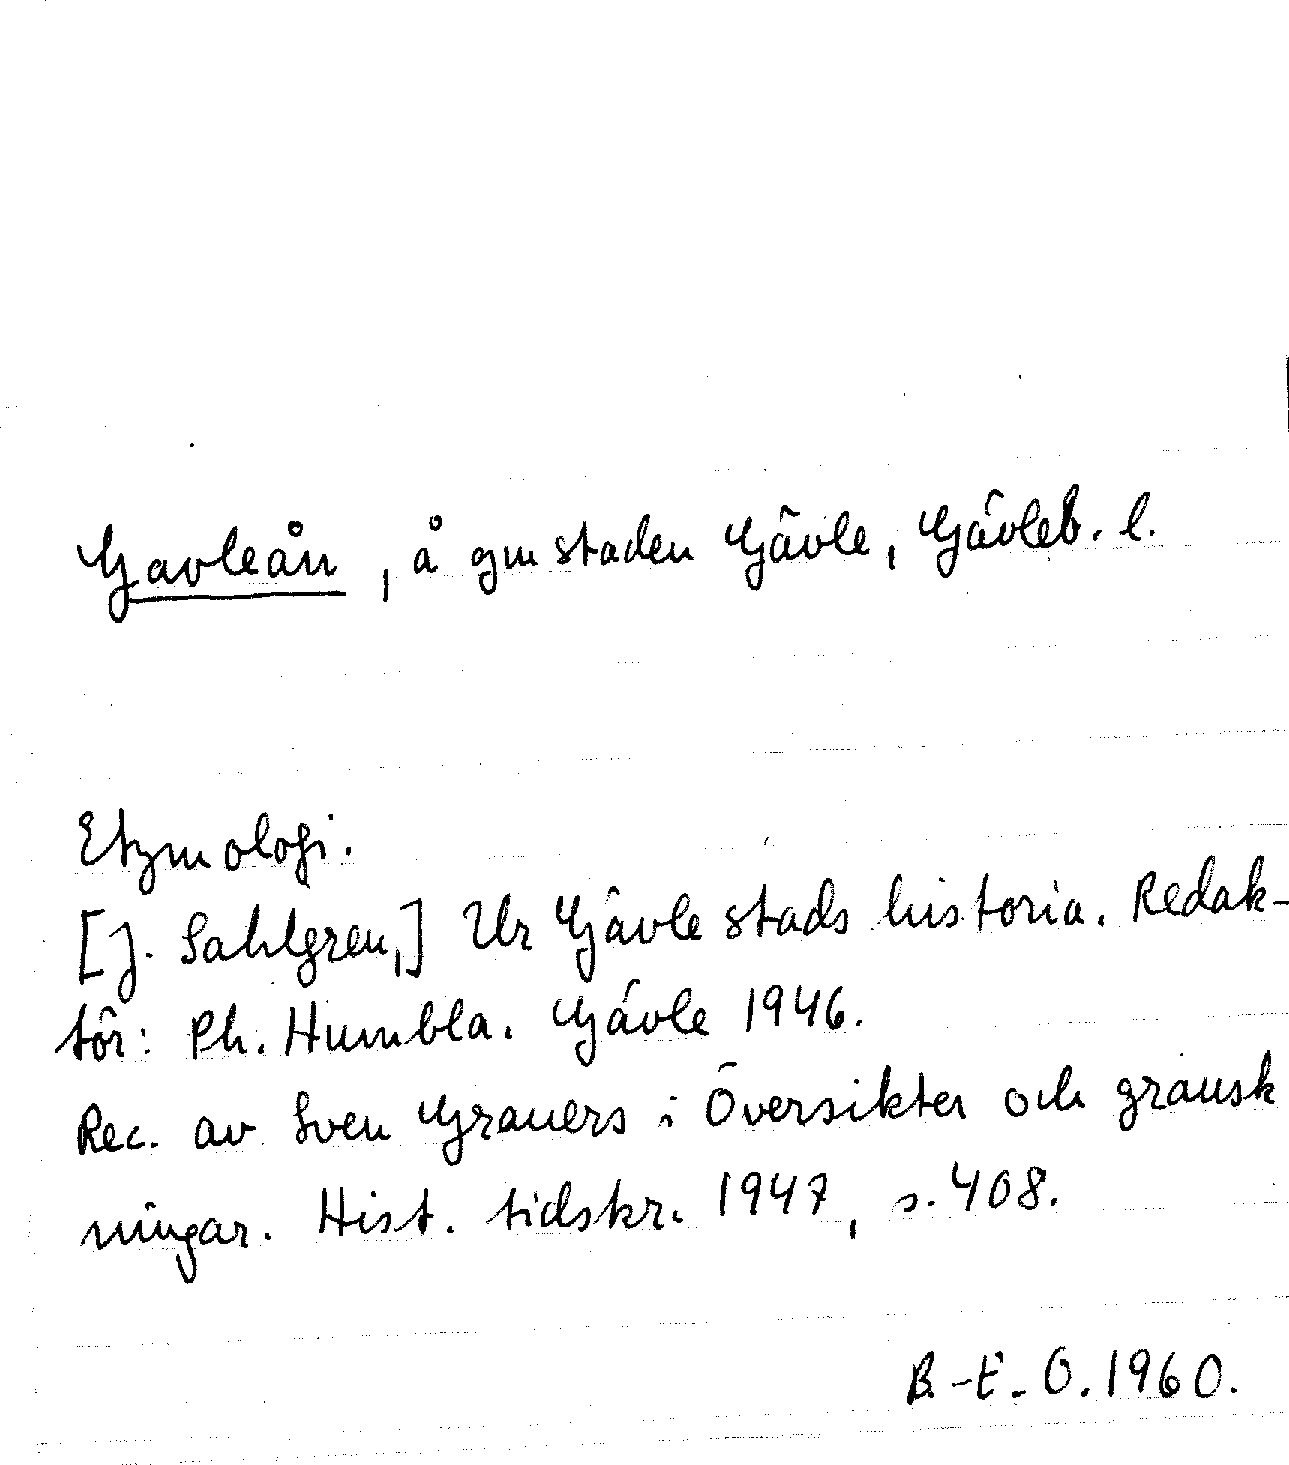 Gavleån, å gm staden Gävle, Gävleb. l.
Etymologi.
[J. Sahlgren,] Ur Gävle stads historia. Redak-
tör: Ph. Humbla. Gävle 1946.
Rec. av Sven Grauers i Översikter och gransk
ningar. Hist. tidskr. 1947, s. 408.
B.-E. O. 1960.